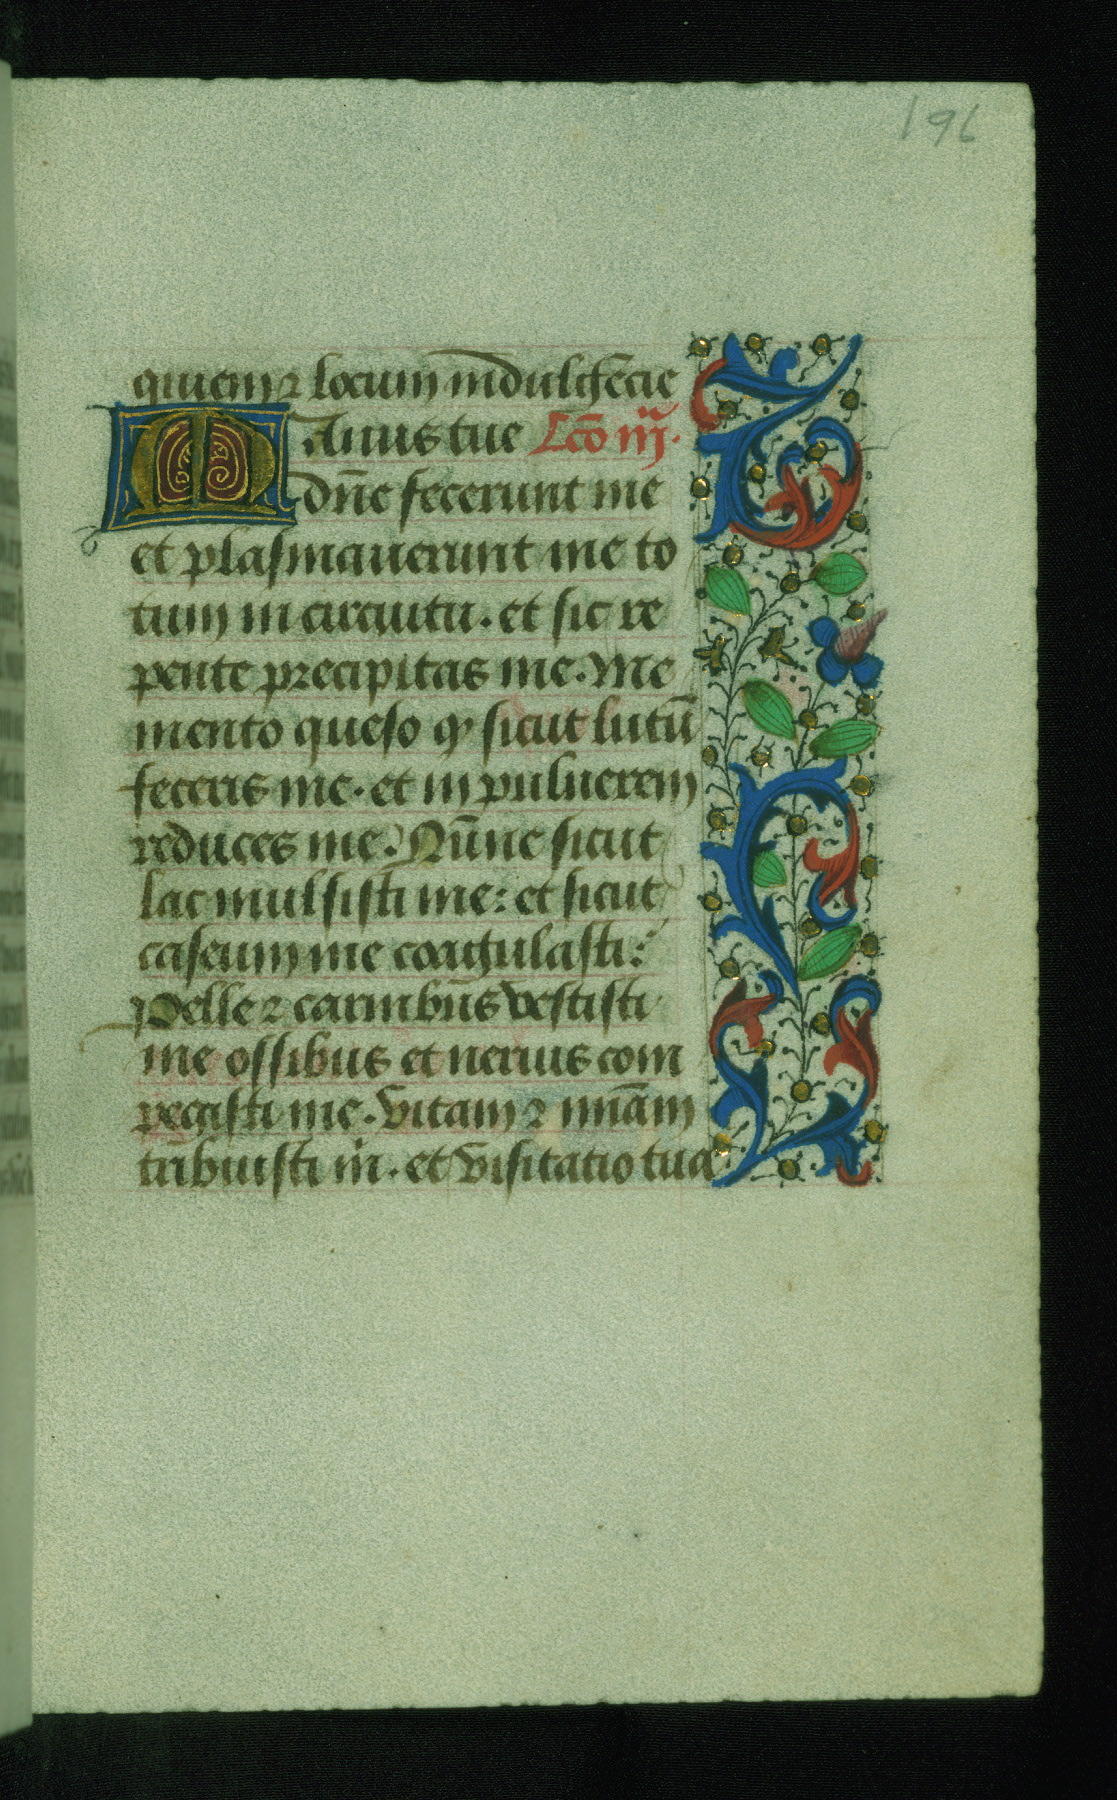 196
quiem ⁊ locum indulgēcie
Manus tue Lcō iii.
dn̄e fecerunt me
et plasmauerunt me to
tum in circuitu. et sic re
pente precipitas me. Me
mento queso ꝙ sicut lutū
feceris me. et in puluerem
reduces me. Nūne sicut
lac mulsisti me: et sicut
caseum me coagulasti:
Pelle ⁊ carnibus vestisti
me ossibus et neruis com
pegisti me. Vitam ⁊ mīam
tribuisti m̄. et visitatio tua